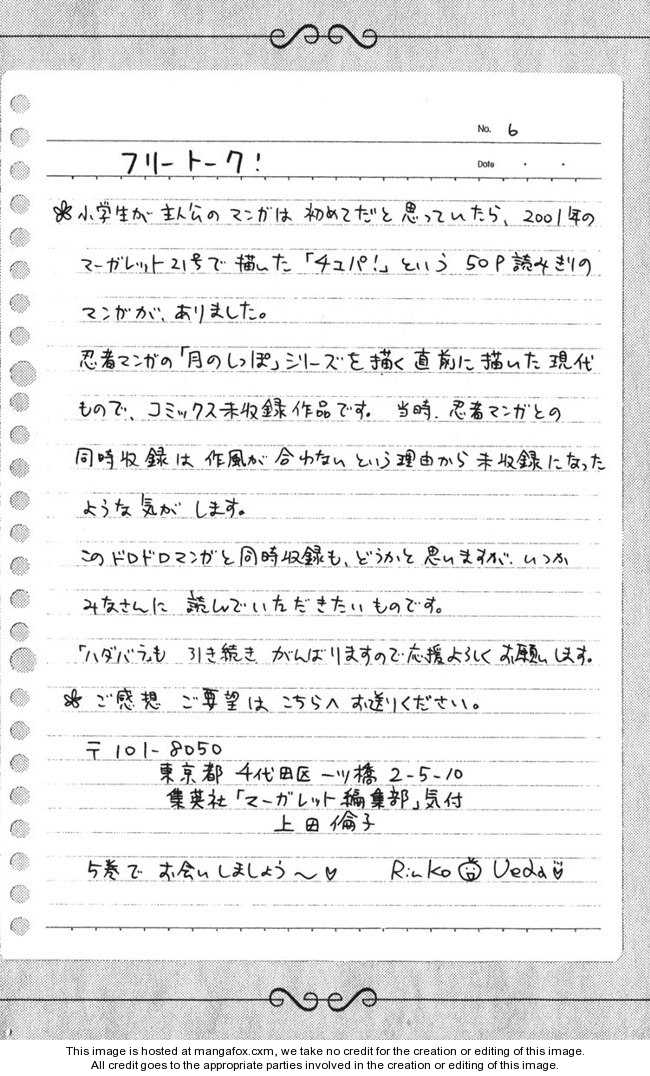 No. 6
フリートーク!
Date ・ ・
✽小学生が主人公のマンガは初めてだと思っていたら、2001年の
マーガレット21号で描いた「チュパ!」という50P読みきりの
マンガが、ありました。
忍者マンガの「月のしっぽ」シリーズを描く直前に描いた現代
もので、コミックス未収録作品です。当時、忍者マンガとの
同時収録は作風が合わないという理由から未収録になった
ような気がします。
このドロドロマンガと同時収録も、どうかと思いますが、いつか
みなさんに読んでいただきたいものです。
「ハダバラ」も引き続きがんばりますので応援よろしくお願いします。
✽ご感想ご要望はこちらへお送りください。
〒101-8050
東京都千代田区一ツ橋2-5-10
集英社「マーガレット編集部」気付
上田倫子
5巻でお会いしましょう〜♡ Rinko Ueda♡
This image is hosted at mangafox.cxm, we take no credit for the creation or editing of this image.
All credit goes to the appropriate parties involved in the creation or editing of this image.